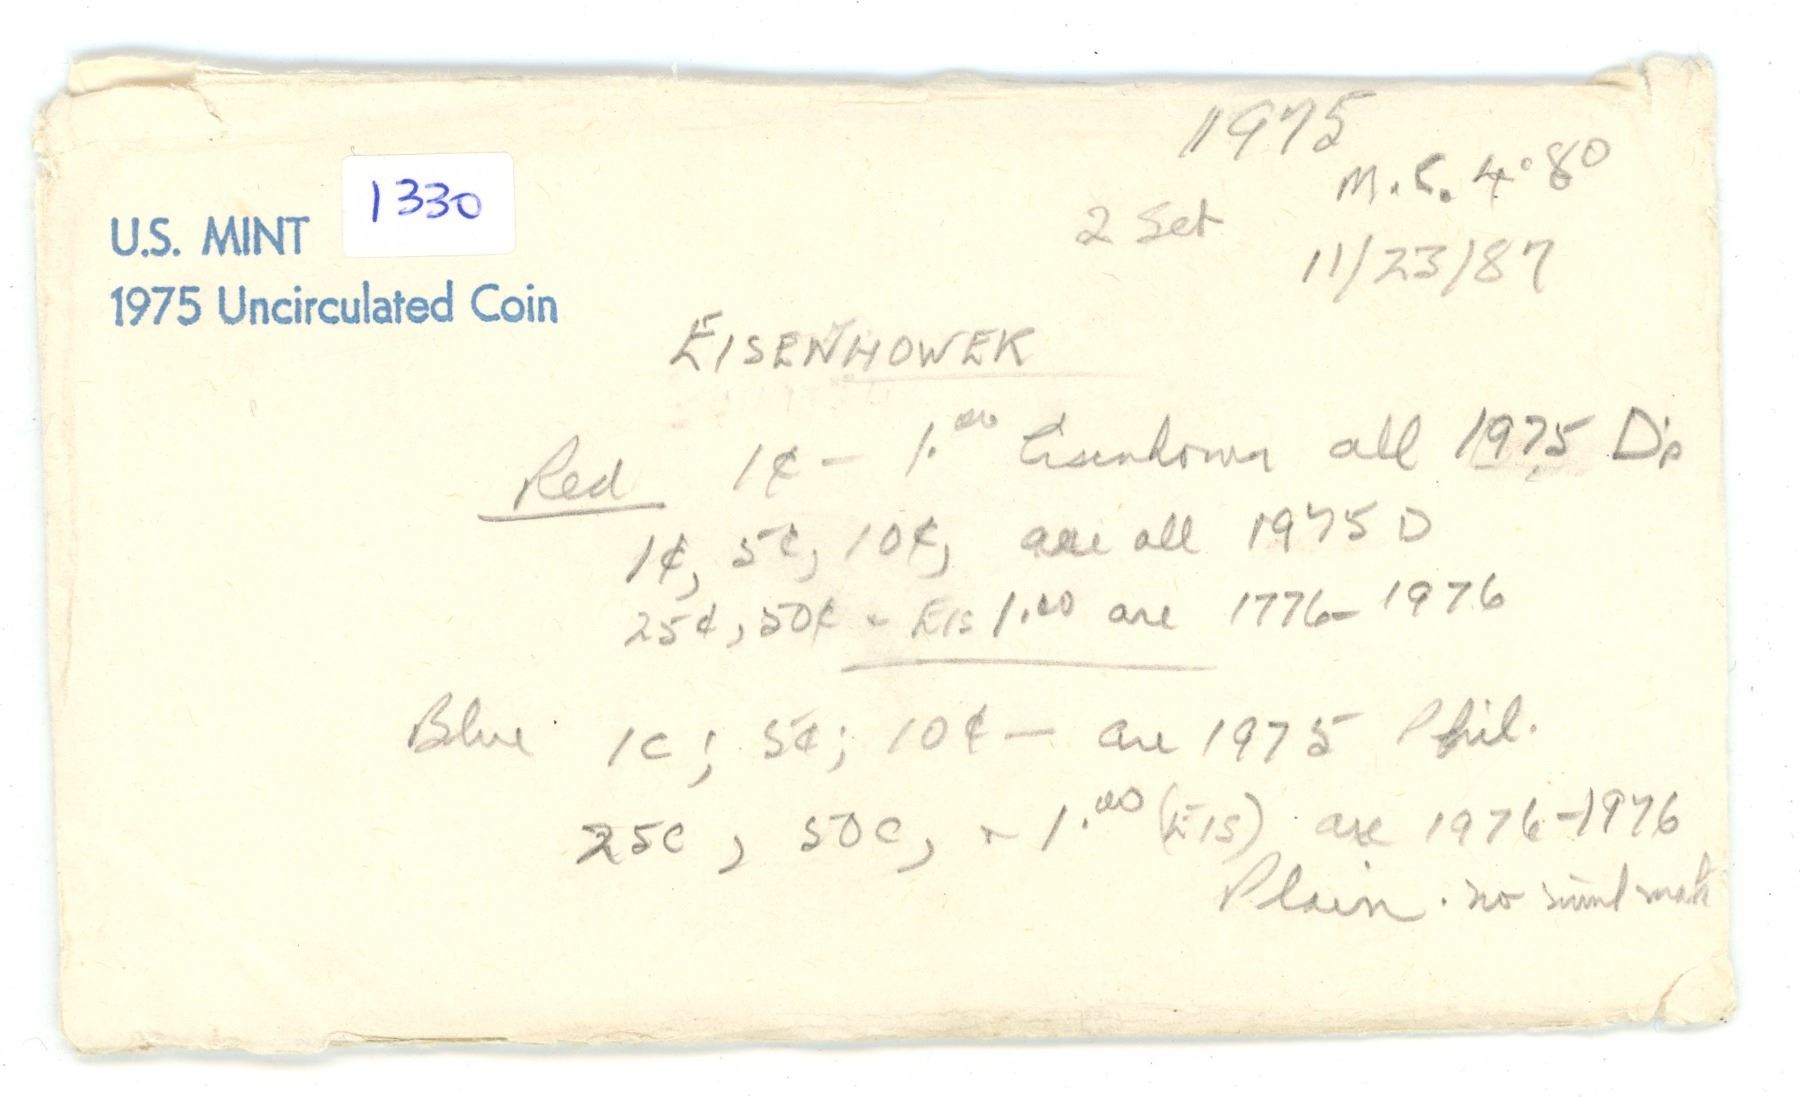 1975
1330
M.C. 4.80
2 Set
U.S. MINT
11/23/87
1975 Uncirculated Coin
EISENHOWER
Red 1¢ - 1.00 Eisenhower all 1975 D's
1¢, 5¢, 10¢, are all 1975 D
25¢, 50¢ - EIS 1.00 are 1776-1976
Blue 1c; 5¢; 10¢ - are 1975 Phil.
25c, 50c, - 1.00 (EIS) are 1976-1976
Plain. no mint mark